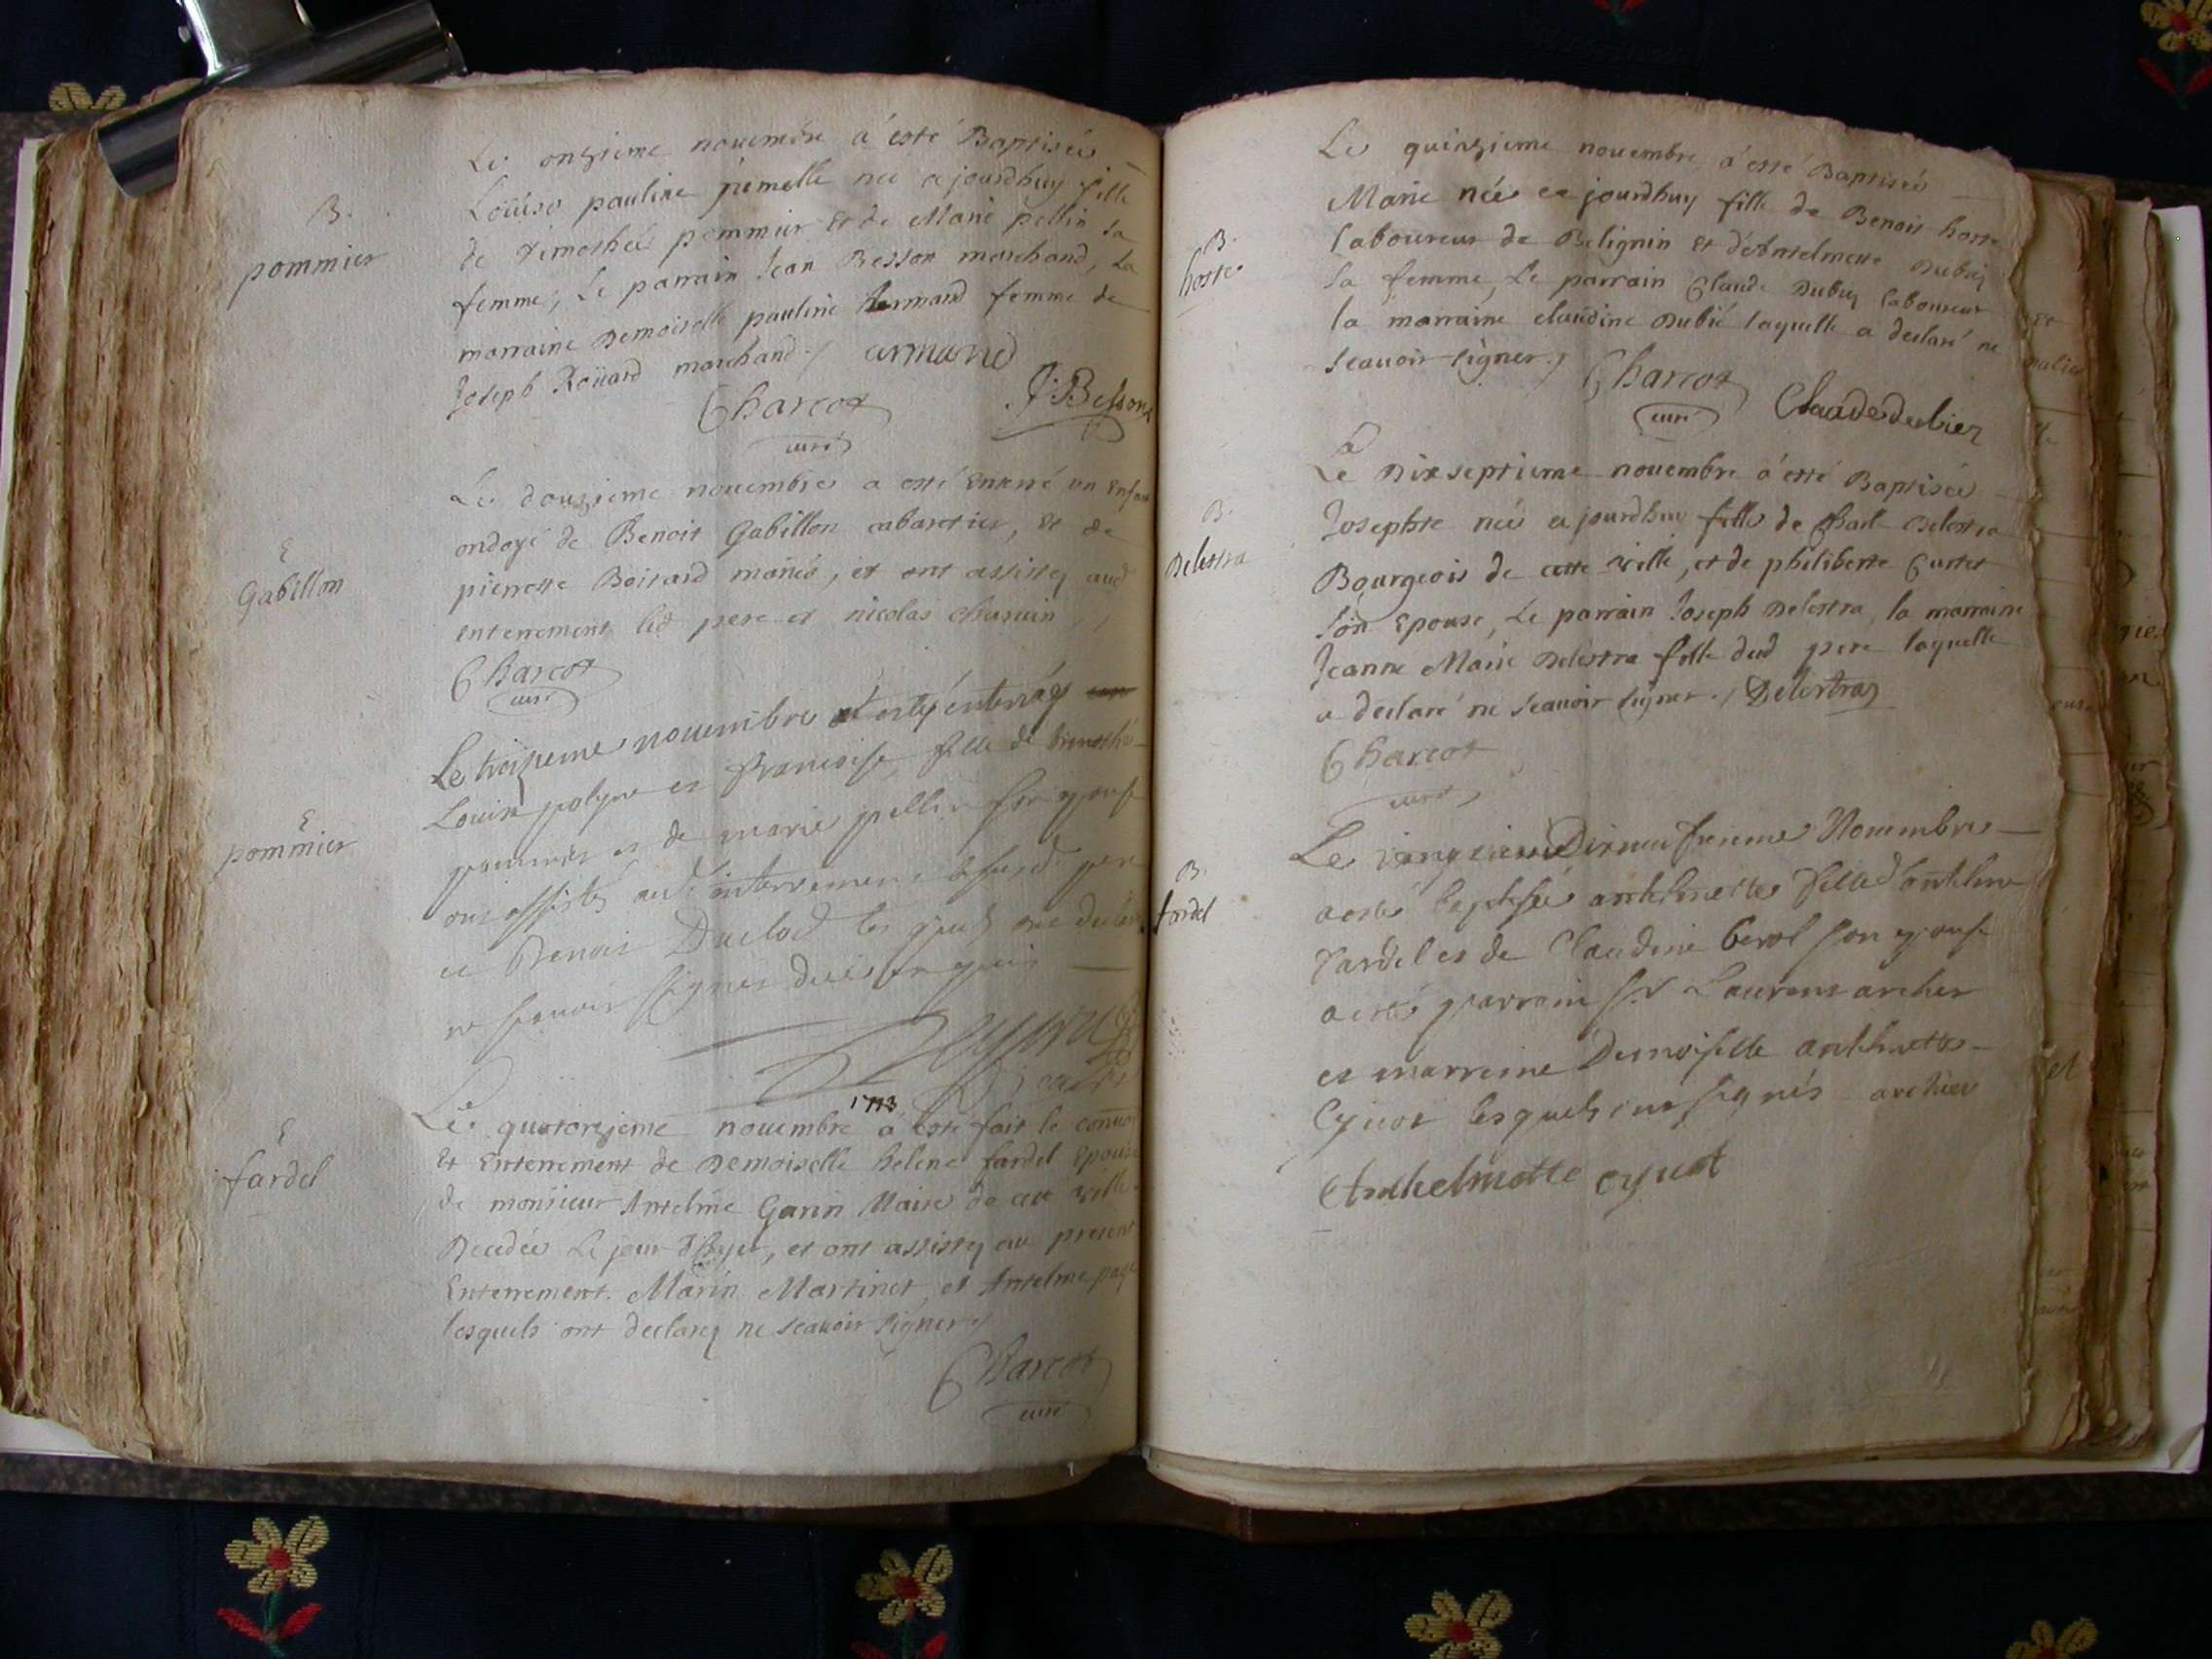 B.
pommier
Le onzieme nouembre a esté Baptisée
Loüise pauline jumelle née ajourdhuy fille
de timothée pommier et de Marie pellin sa
femme, Le parrain Jean Besson marchand, La
marraine Demoiselle pauline Armand femme de
Joseph Roüard marchand ./ armand
Charcot J: Besson
curé
E
Gabillon
Le douzieme nouembre a esté Enterré un Enfant
ondoyé de Benoit Gabillon cabaretier, et de
pierrette Boisard mariés, et ont assistey aud
enterrement led pere et nicolas
Charcot
curé
E
pommier
Le troizieme nouembre esté enterréz
Louise polyne et francoise fille de timothé
pommier et de marie pellin son epouse
ont assistés aud enterrement led pere
et Benoit Duclod les quels ont declaré
ne scauoir signer de ce enquis
vicaire
1713
E
fardel
Le quatorzieme nouembre a esté fait le conuoi
Et Enterrement de Demoiselle helene fardel Epouse
de monsieur Antelme Garin Maire de cette ville
Decedée Le jour d'hyer, et ont assistey au present
Enterrement. Marin Martinet, et Antelme page
lesquels ont declarey ne scauoir signer ./
Charcot
curé
B.
hoste
Le quinzieme nouembre a esté Baptisée
Marie née ce jourdhuy fille de Benoit hoste
laboureur de Belignin Et d'Antelmette Dubiez
sa femme, Le parrain Claude Dubiez laboureur
la marraine claudine Dubié laquelle a declaré ne
scauoir signer ./ Charcot
curé Claude dubiez
B.
Delestra
Le Dix septieme nouembre a esté Baptisée
Josephte née ajourdhuy fille de Charl Delestra
Bourgeois de cette ville, et de philiberte Curtet
son Epouse, Le parrain Joseph Delestra, la marraine
Jeanne Marie Delestra fille dud pere laquelle
a declaré ne scauoir signer ./ Delestraz
Charcot
curé
B.
fardel
Le Dixneufuieme Nouembre
a esté baptisée anthelmette fille d'anthelme
fardel et de Claudine Berol son epouse
a esté parrain Sr Laurent archer
et marreine Demoiselle anthelmette
Cyuot lesquels ont signés archier
Anthelmette cyuot